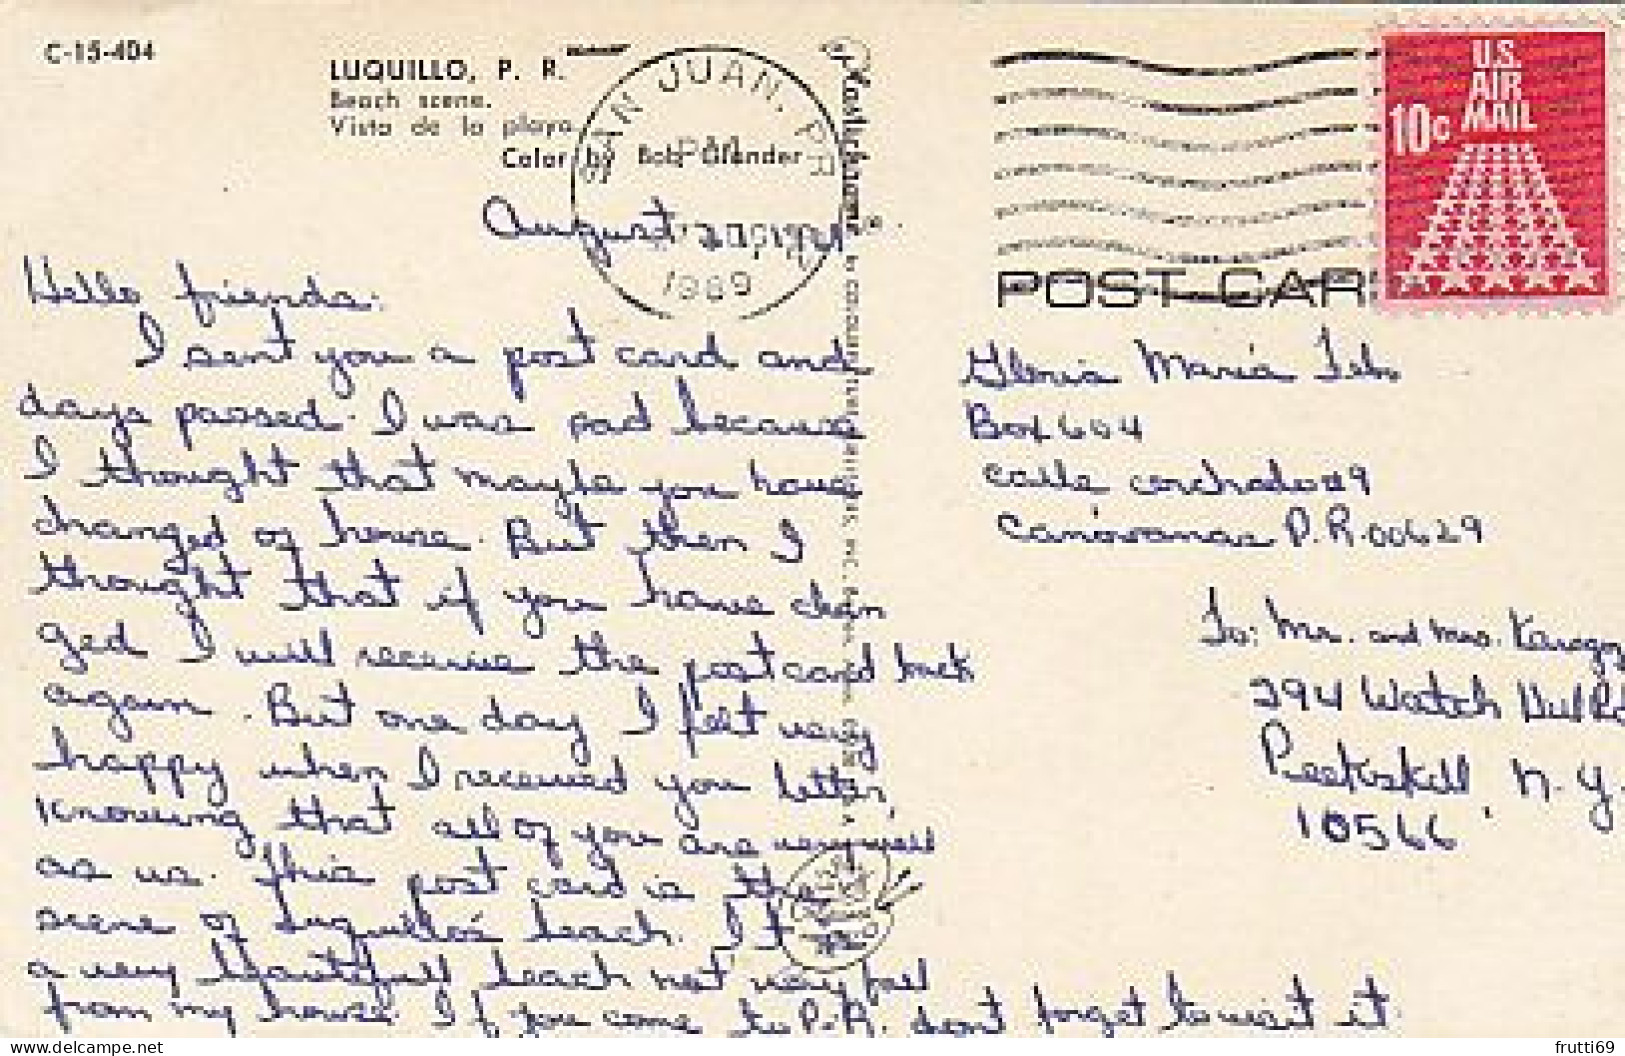 C-15-404
LUQUILLO, P. R.
Beach scene.
Vista de la playa
Color by Bob Glander
SAN JUAN, PR
PM
1969
U.S.
AIR
MAIL
10c
POST CARD
August
Hello friends:
I sent you a post card and
days passed. I was sad because
I thought that maybe you have
changed of house. But then I
thought that if you have chan
ged I will receive the post card back
again. But one day I felt very
happy when I received you letter,
knowing that all of you are very well
as us. This post card is the
scene of Luquillo's beach. It
a very beautifull beach not vey far
from my house. If you come to P.R. dont forget to visit it.
Gloria Maria Feb
Box 604
Calle Corchado #9
Canóvanas P.R. 00629
To: Mr. and Mrs.
294 Watch Hill Rd
Peekskill, N.Y.
10566
frutti69
delcampe.net